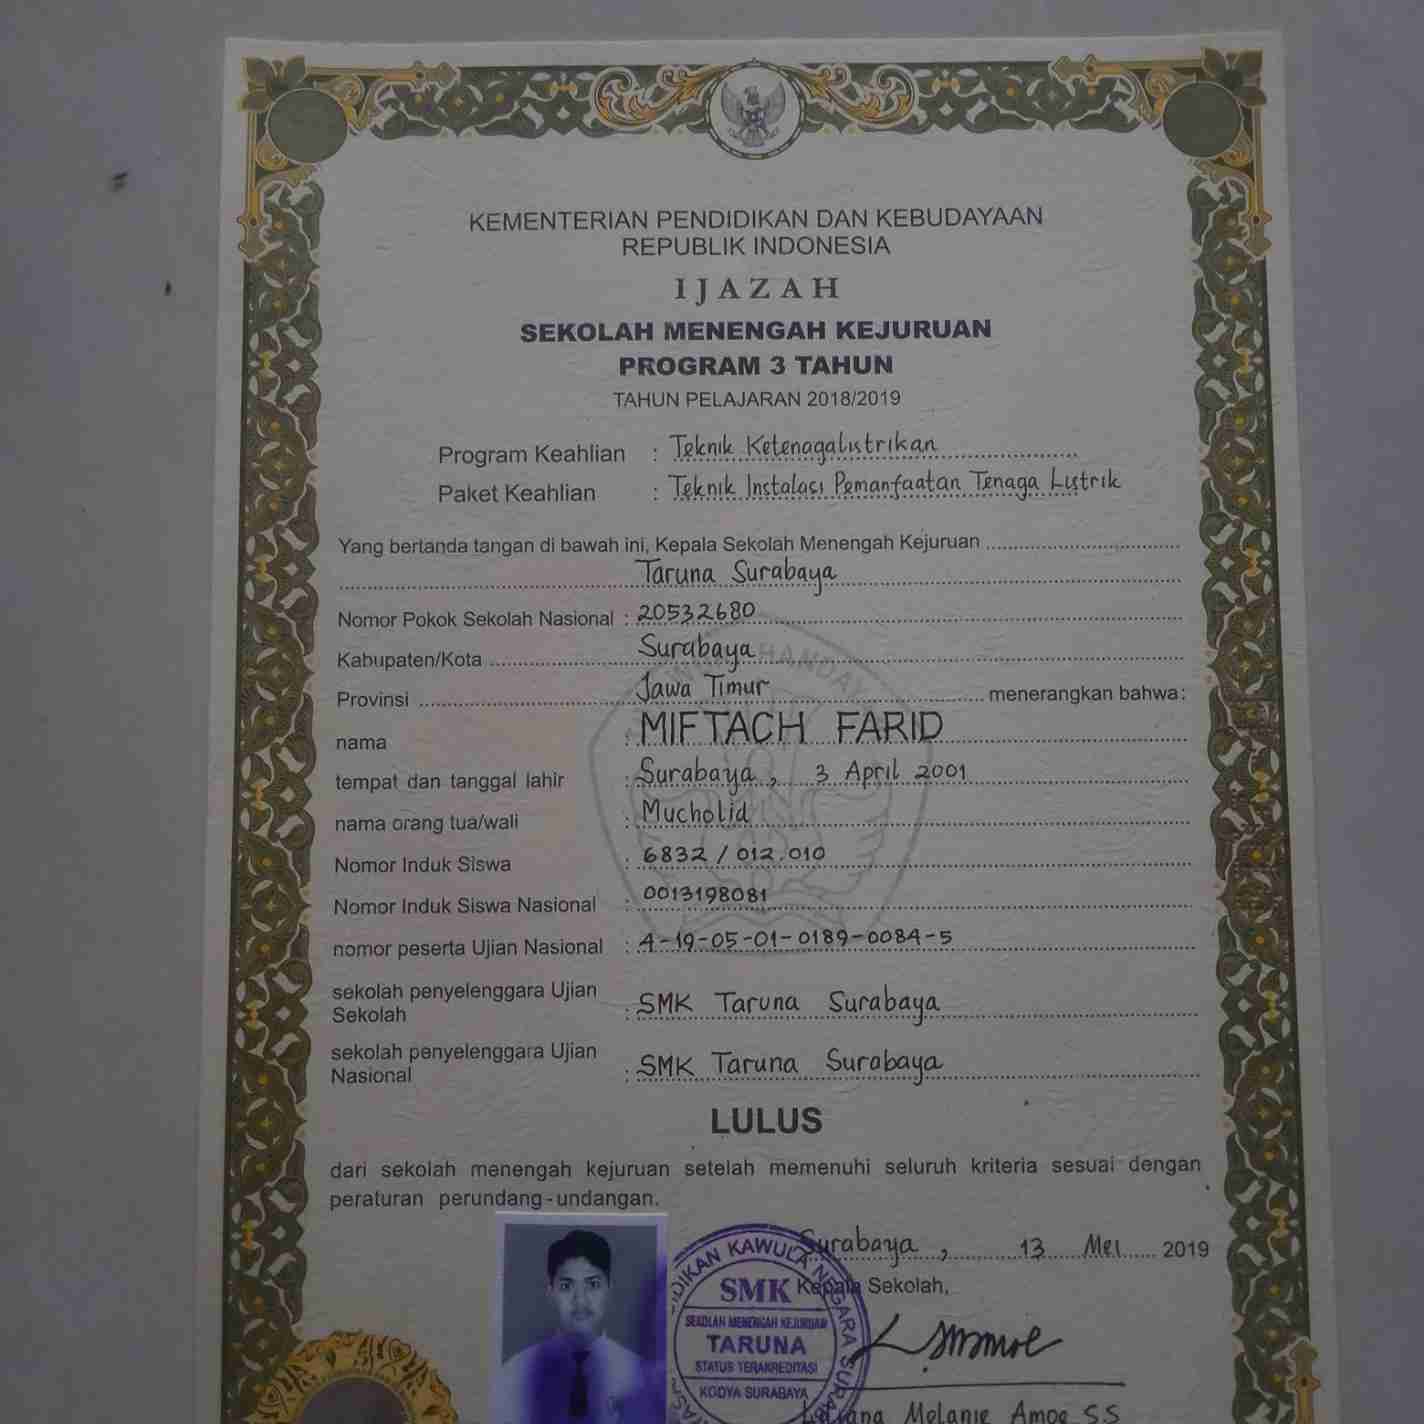 KEMENTERIAN PENDIDIKAN DAN KEBUDAYAAN
REPUBLIK INDONESIA
IJAZAH
SEKOLAH MENENGAH KEJURUAN
PROGRAM 3 TAHUN
TAHUN PELAJARAN 2018/2019
Program Keahlian : Teknik Ketenagalistrikan
Paket Keahlian : Teknik Instalasi Pemanfaatan Tenaga Listrik
Yang bertanda tangan di bawah ini, Kepala Sekolah Menengah Kejuruan
Taruna Surabaya
Nomor Pokok Sekolah Nasional : 20532680
Kabupaten/Kota Surabaya
Provinsi Jawa Timur menerangkan bahwa:
nama : MIFTACH FARID
tempat dan tanggal lahir : Surabaya, 3 April 2001
nama orang tua/wali : Mucholid
Nomor Induk Siswa : 6832 / 012.010
Nomor Induk Siswa Nasional : 0013198081
nomor peserta Ujian Nasional : 4-19-05-01-0189-0084-5
sekolah penyelenggara Ujian
Sekolah : SMK Taruna Surabaya
sekolah penyelenggara Ujian
Nasional : SMK Taruna Surabaya
LULUS
dari sekolah menengah kejuruan setelah memenuhi seluruh kriteria sesuai dengan
peraturan perundang-undangan.
Surabaya, 13 Mei 2019
Kepala Sekolah,
KAWULA NEGARA
SMK
SEKOLAH MENENGAH KEJURUAN
TARUNA
STATUS TERAKREDITASI
KODYA SURABAYA
Melanie Amoe S.S